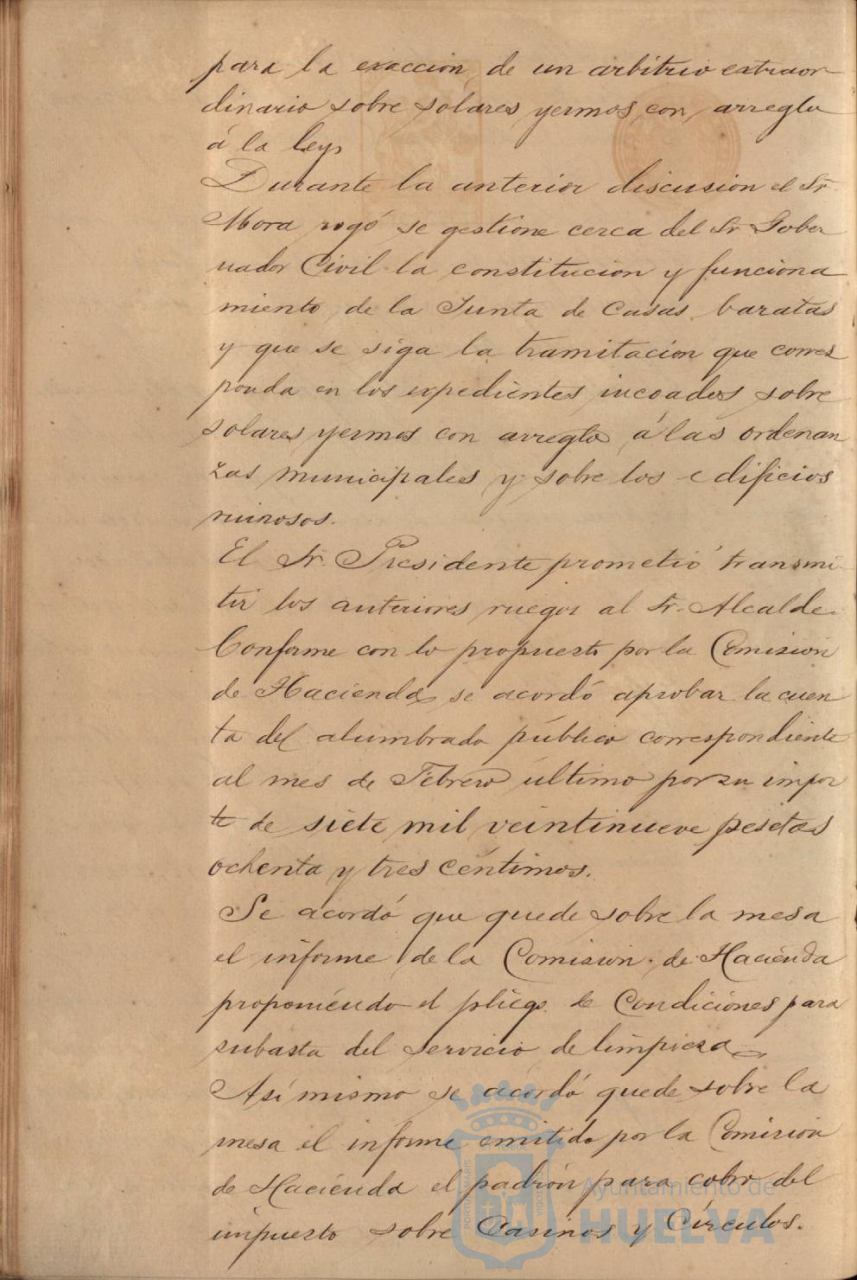 para la exaccion de un arbitrio extraor
dinario sobre solares yermos con arreglo
á la ley,
Durante la anterior discusion el Sr.
Mora rogó se gestione cerca del Sr Gober
nador Civil la constitucion y funciona
miento de la Junta de Casas baratas
y que se siga la tramitacion que corres
ponda en los expedientes incoados sobre
solares yermos con arreglo á las ordenan
zas municipales y sobre los edificios
ruinosos.
El Sr. Presidente prometió transmi
tir los anteriores ruegos al Sr. Alcalde.
Conforme con lo propuesto por la Comision
de Hacienda se acordó aprobar la cuen
ta del alumbrado público correspondiente
al mes de Febrero último por su impor
te de siete mil veintinueve pesetas
ochenta y tres céntimos.
Se acordó que quede sobre la mesa
el informe de la Comision de Hacienda
proponiendo el pliego de Condiciones para
subasta del servicio de limpieza
Asi mismo se acordó quede sobre la
mesa el informe emitido por la Comision
de Hacienda el padrón para cobro del
impuesto sobre Casinos y Círculos.
Ayuntamiento de
HUELVA